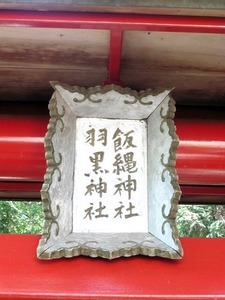 飯縄神社
羽黒神社